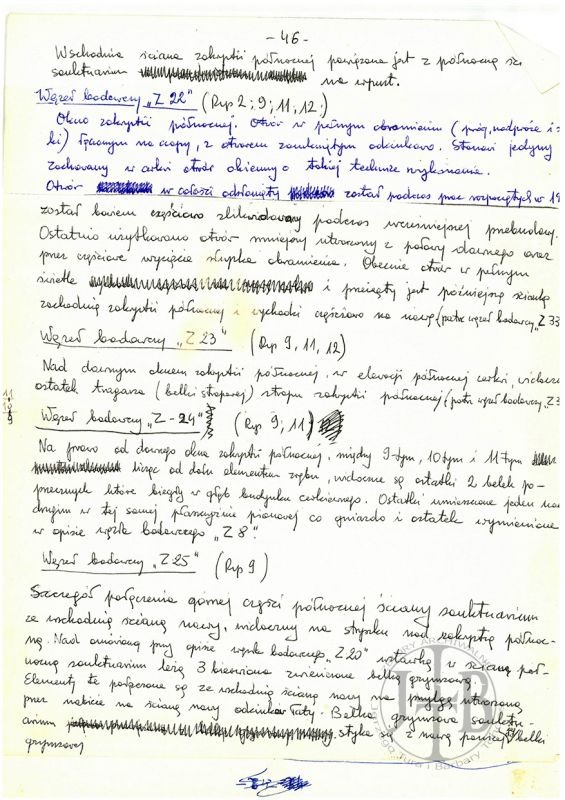 - 46 -
Wschodnia ściana zakrystii północnej powiązana jest z północną śc
sanktuarium na wpust.
Węzeł badawczy „Z 22" (Ryp 2; 9; 11; 12.)
Okno zakrystii północnej. Otwór w pełnym obramieniu (próg, nadproże i
ki) łączonym na czopy, z otworem zamkniętym odcinkowo. Stanowi jedyny
zachowany w cerkwi otwór okienny o takiej technice wykonania.
Otwór w całości odsłonięty został podczas prac rozpoczętych w 19
został bowiem częściowo zlikwidowany podczas wcześniejszej przebudowy.
Ostatnio użytkowano otwór mniejszy utworzony z połowy dawnego oraz
przez częściowe wycięcie słupka obramienia. Obecnie otwór w pełnym
świetle i przecięty jest późniejszą ścianką
zachodnią zakrystii północnej i wychodzi częściowo na nawę (patrz węzeł badawczy „Z 33
Węzeł badawczy „Z 23" (Ryp 9, 11, 12)
Nad dawnym oknem zakrystii północnej, w elewacji północnej cerkwi, widoczn
ostatek tragarza (belki stropowej) stropu zakrystii północnej (patrz węzeł badawczy „Z 3
Węzeł badawczy „Z-24" (Ryp 9, 11)
Na prawo od dawnego okna zakrystii północnej, między 9-tym, 10-tym i 11-tym
licząc od dołu elementem zrębu, widoczne są ostatki 2 belek po-
przecznych które biegły w głąb budynku cerkiewnego. Ostatki umieszczone jeden nad
drugim w tej samej płaszczyźnie pionowej co gniazdo i ostatek wymienione
w opisie węzła badawczego „Z 8".
Węzeł badawczy „Z 25" (Ryp 9)
Szczegół połączenia górnej części północnej ściany sanktuarium
ze wschodnią ścianą nawy, widoczny na stryszku nad zakrystią północ-
ną. Nad omówioną przy opisie węzła badawczego „Z 20" wstawką w ścianę pół-
nocną sanktuarium leżą 3 bierwiona zwieńczone belką gzymsową.
Elementy te połączone są ze wschodnią ścianą nawy na utworzoną
przez nabicie na ścianę nawy odcinków łaty. Belka gzymsowa sanktu-
arium styka się z nawą poniżej belki
gzymsowej